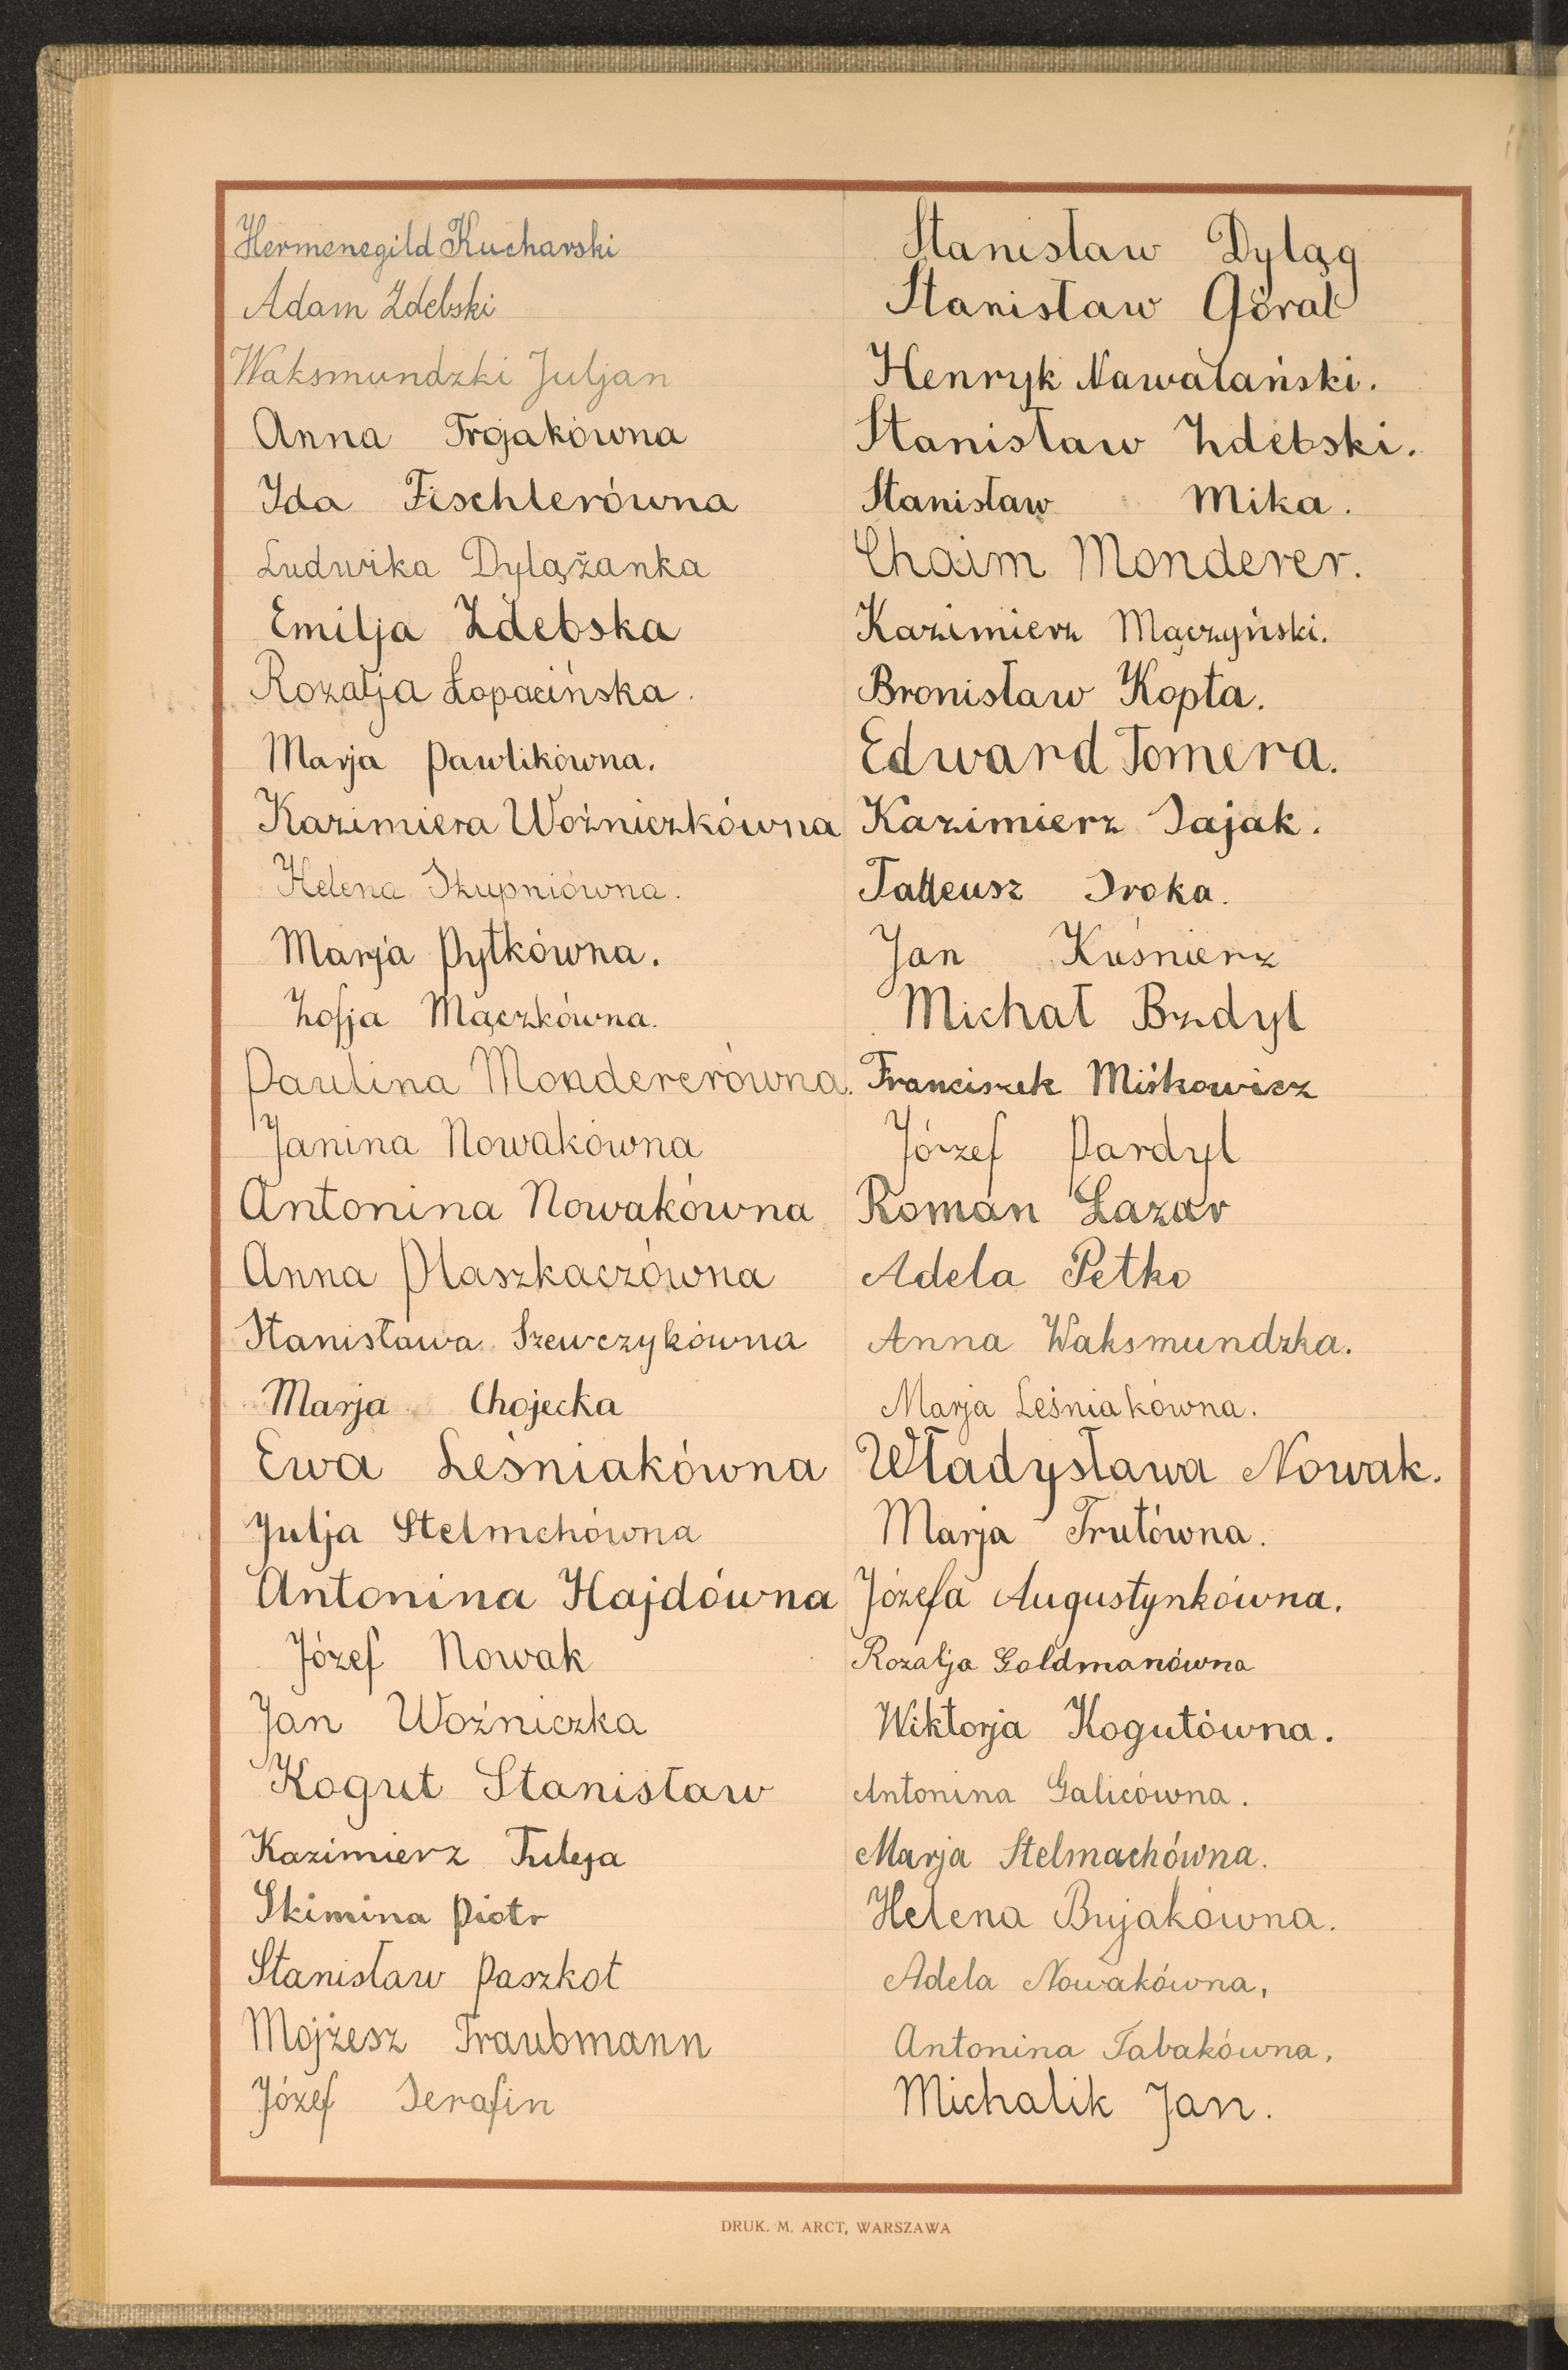 Hermenegild Kucharski
Adam Zdebski
Waksmundzki Juljan
Anna Trojakówna
Ida Fischlerówna
Ludwika Dylążanka
Emilja Zdebska
Rozalja Łopacińska.
Marja Pawlikówna.
Kazimiera Woźniczkówna
Helena Słupniówna.
Marja Pytkówna.
Zofja Mączkówna.
Paulina Mondererówna.
Janina Nowakówna
Antonina Nowakówna
Anna Płaszkaczówna
Stanisława Szewczykówna
Marja Chojecka
Ewa Leśniakówna
Julja Stelmchówna
Antonina Hajdówna
Józef Nowak
Jan Woźniczka
Kogut Stanisław
Kazimierz Tuleja
Skimina Piotr
Stanisław Paszkot
Mojżesz Traubmann
Józef Serafin
Stanisław Dyląg
Stanisław Góral
Henryk Nawalański.
Stanisław Zdebski.
Stanisław Mika.
Chaim Monderer.
Kazimierz Mączyński.
Bronisław Kopta.
Edward Tomera.
Kazimierz Sajak.
Tadeusz Sroka.
Jan Kuśnierz
Michał Bzdyl
Franciszek Miśkowicz
Józef Pardyl
Roman Łazar
Adela Petko
Anna Waksmundzka.
Marja Leśniakówna.
Władysława Nowak.
Marja Trutówna.
Józefa Augustynkówna.
Rozalja Goldmanówna
Wiktorja Kogutówna.
Antonina Galicówna.
Marja Stelmachówna.
Helena Bujakówna.
Adela Nowakówna,
Antonina Tabakówna,
Michalik Jan.
DRUK. M. ARCT, WARSZAWA